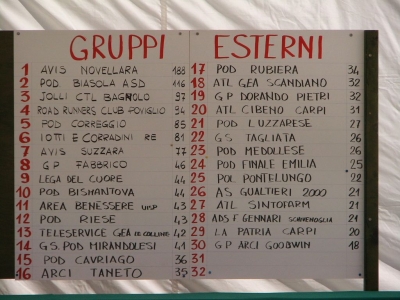 GRUPPI ESTERNI
1 AVIS NOVELLARA 188
2 POD. BIASOLA ASD 116
3 JOLLI CTL BAGNOLO 97
4 ROAD RUNNERS CLUB POVIGLIO 94
5 POD CORREGGIO 85
6 IOTTI E CORRADINI RE 81
7 AVIS SUZZARA 77
8 G P FABBRICO 46
9 LEGA DEL CUORE 44
10 POD BISMANTOVA 44
11 AREA BENESSERE UISP 43
12 POD RIESE 43
13 TELESERVICE GEA IL COLLINO 42
14 G.S. POD MIRANDOLESI 41
15 POD CAVRIAGO 36
16 ARCI TANETO 35
17 POD RUBIERA 34
18 ATL GEA SCANDIANO 32
19 G P DORANDO PIETRI 32
20 ATL CIBENO CARPI 31
21 POD LUZZARESE 27
22 G S TAGLIATA 26
23 POD MEDOLLESE 26
24 POD FINALE EMILIA 25
25 POL PONTELUNGO 22
26 AS GUALTIERI 2000 21
27 ATL SINTOFARM 21
28 ADS F GENNARI 21
29 LA PATRIA CARPI 20
30 G P ARCI GOODWIN 18
31
32